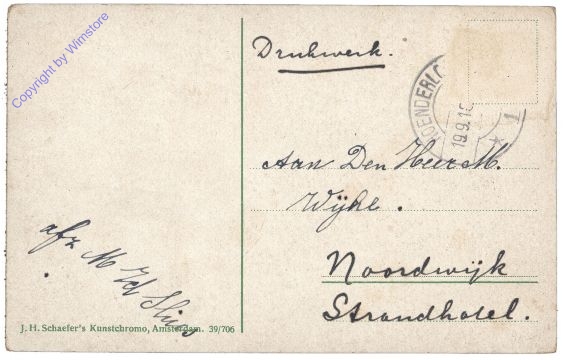 Copyright by Wimstore
Drukwerk.
HOENDERLO
19.9.1
1
Aan Den Heer M.
Wijke.
Noordwijk
Strandhotel.
afz M
J. H. Schaefer's Kunstchromo, Amsterdam. 39/706